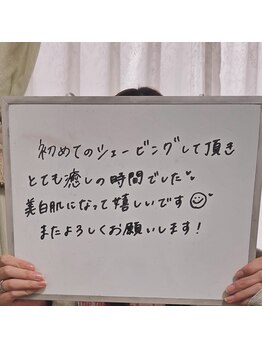 初めてのシェービングして頂き
とても癒しの時間でした
美白肌になって嬉しいです
またよろしくお願いします!